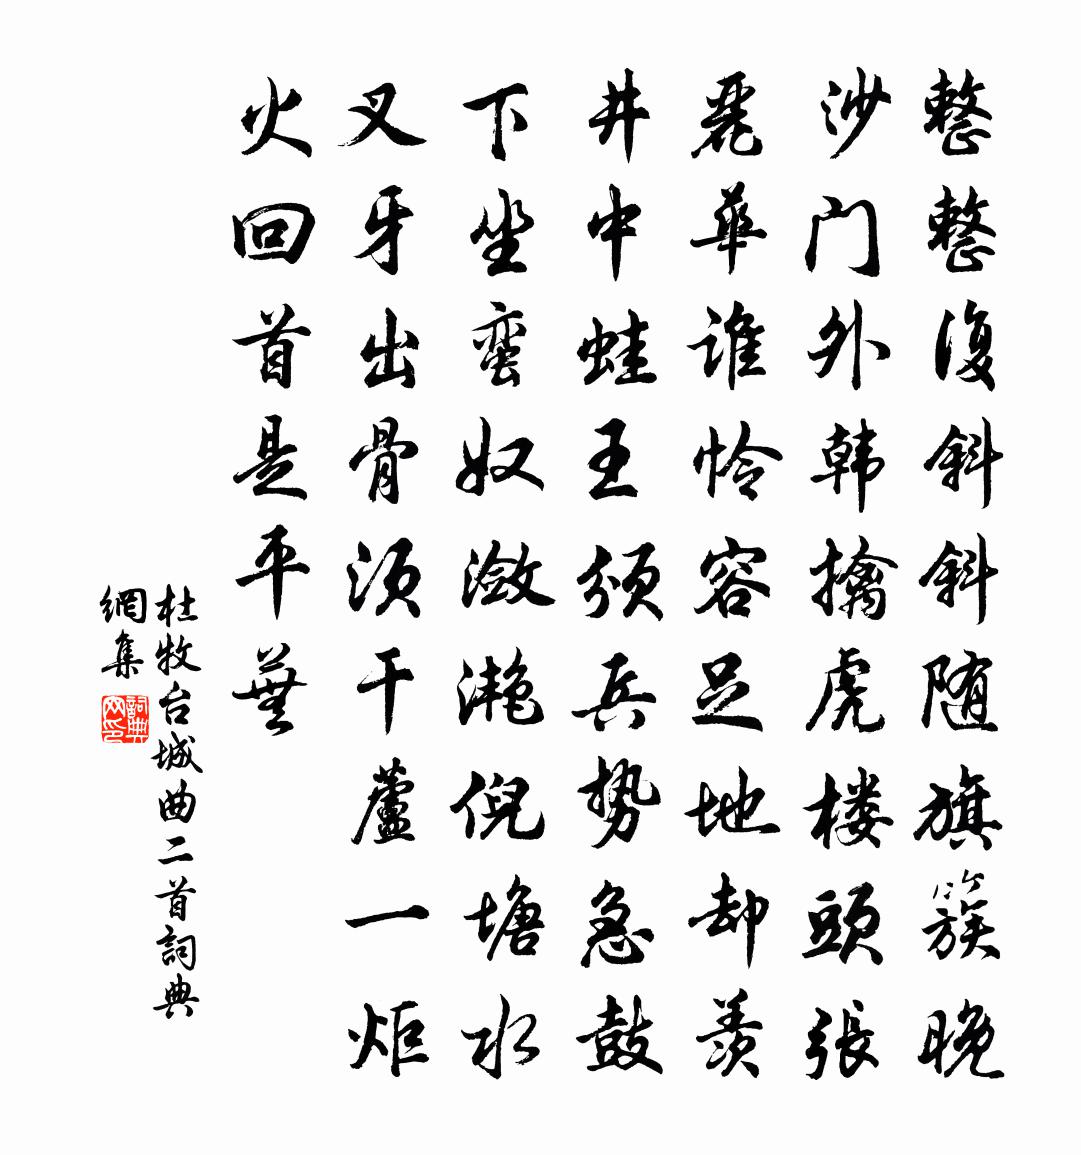 整整復斜斜随旗簇晚
沙门外韩擒虎楼頭張
麗華谁怜容足地却羡
井中蛙王颁兵势急鼓
下坐蛮奴潋滟倪塘水
叉牙出骨须干蘆一炬
火回首是平蕪
杜牧台城曲二首詞典
網集
詞典网印